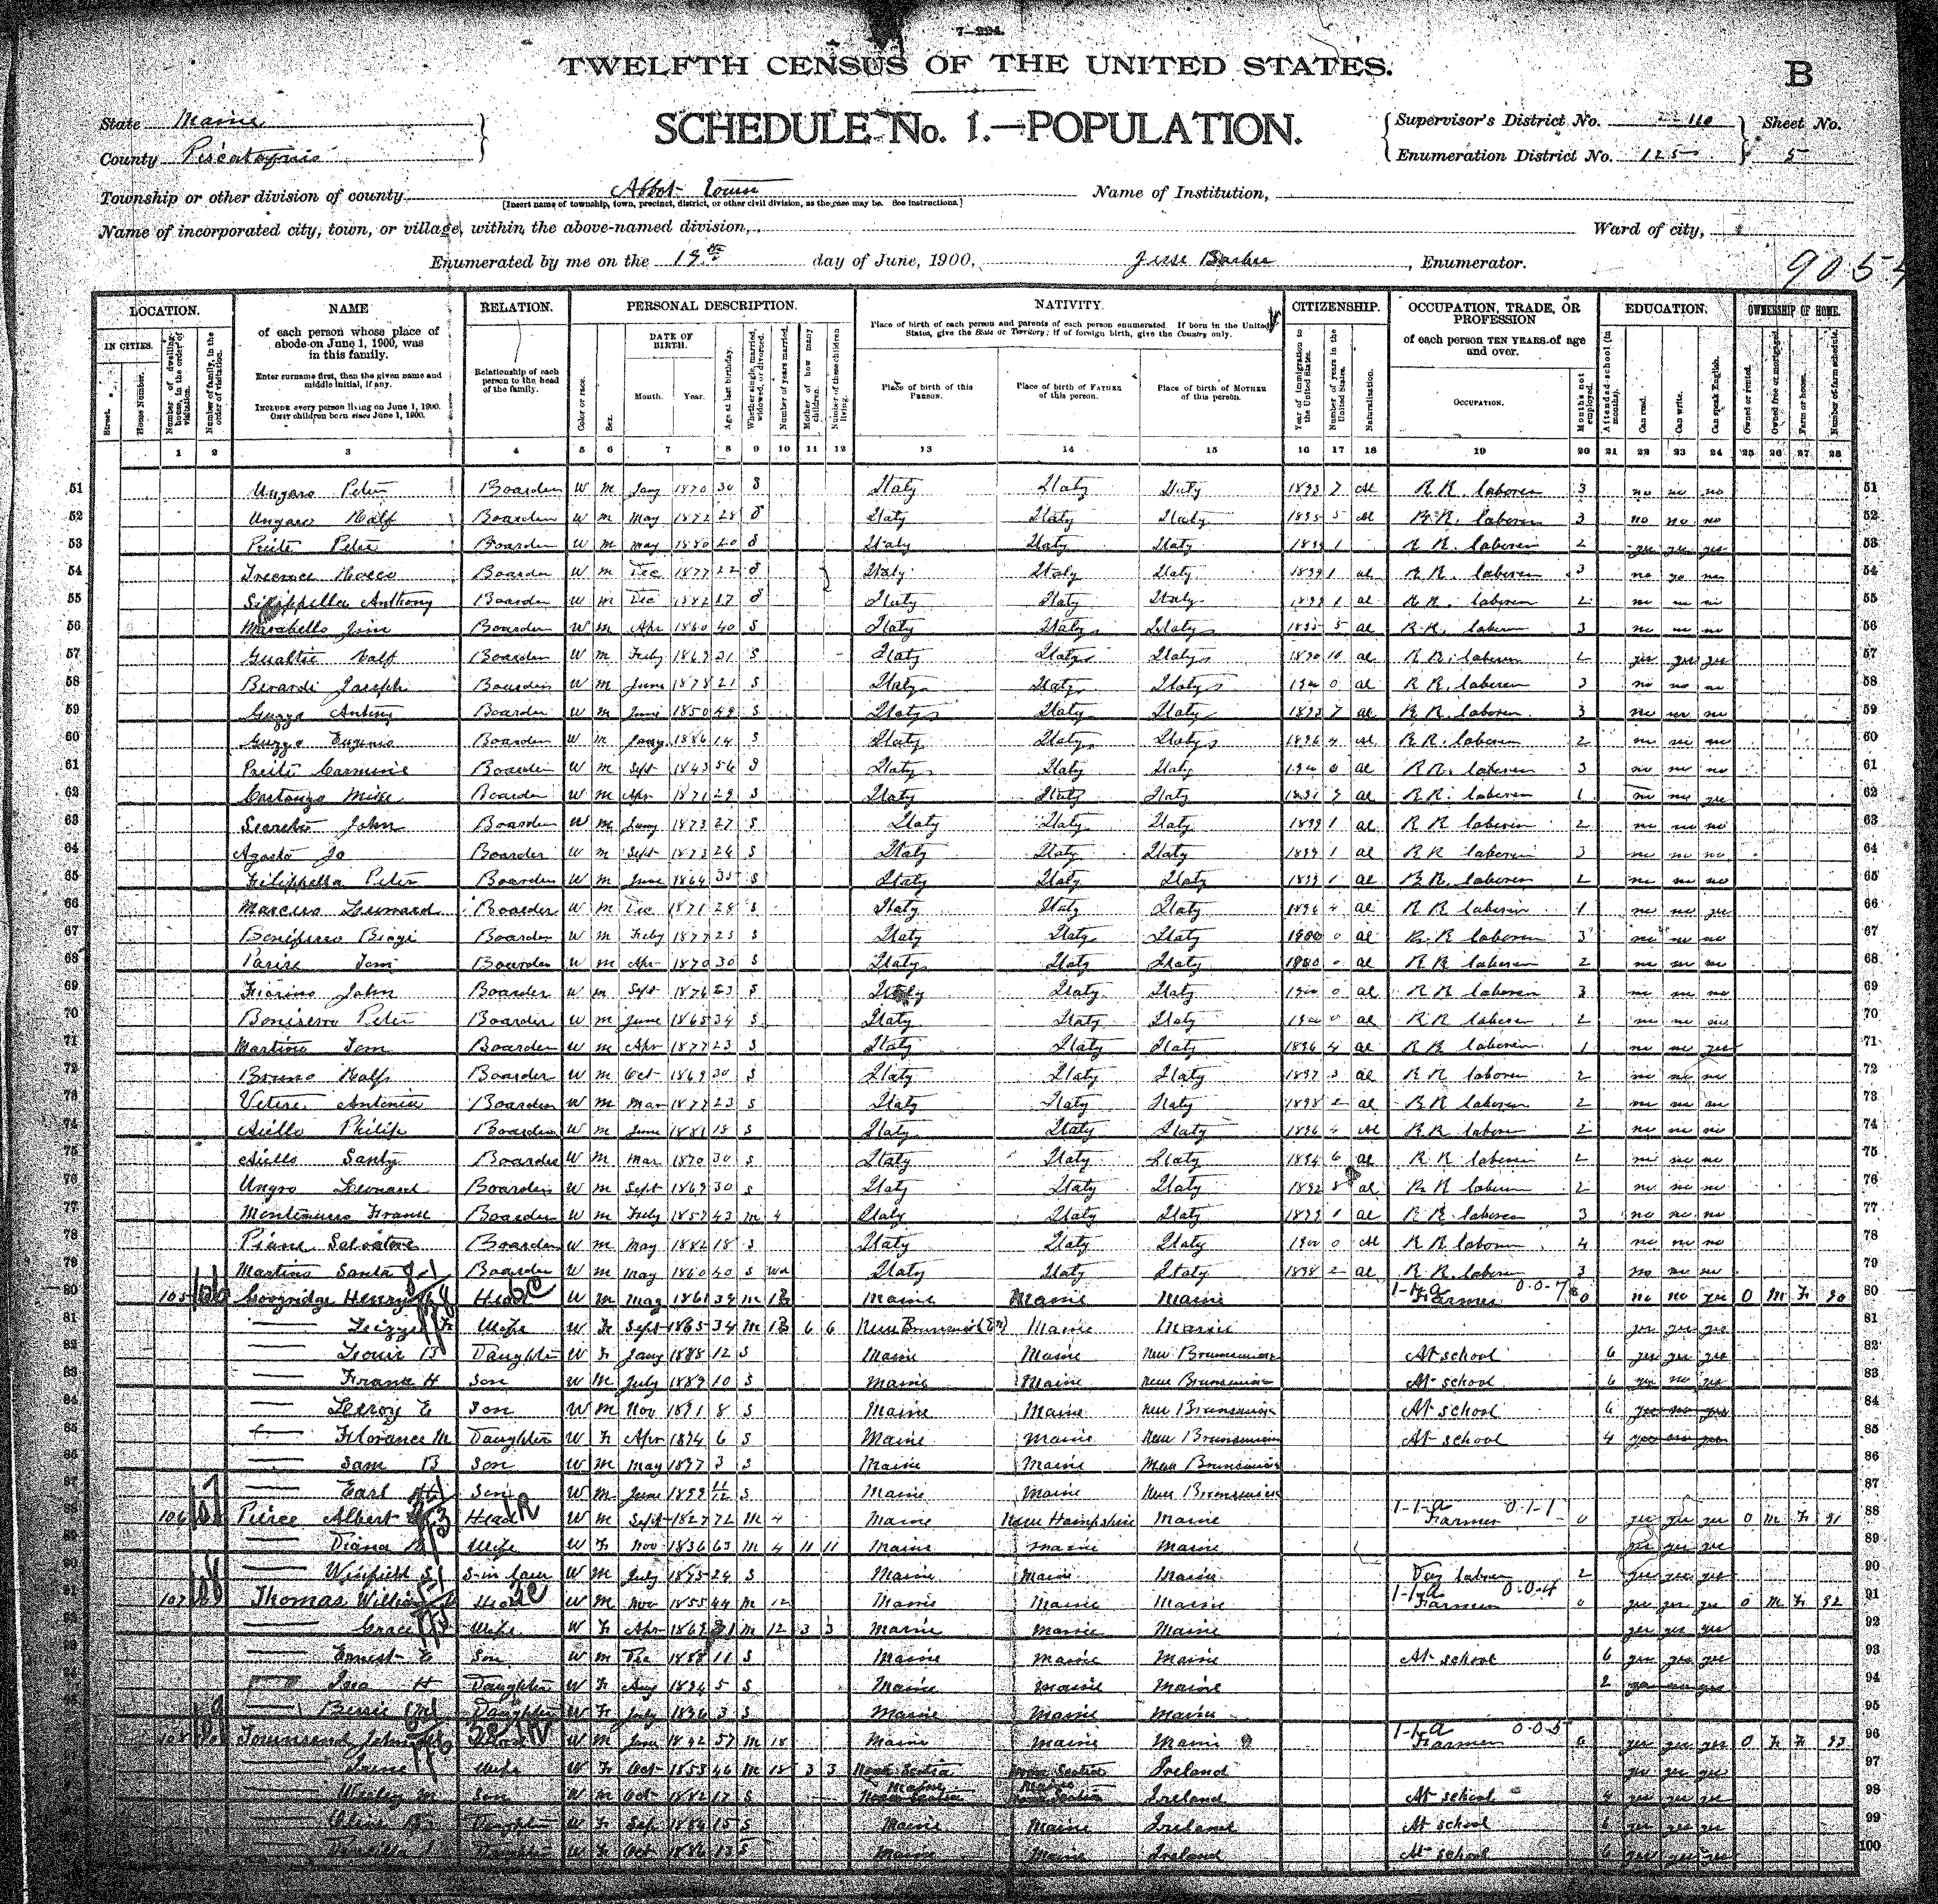 7-224.
TWELFTH CENSUS OF THE UNITED STATES.
B
State Maine
SCHEDULE No. 1.—POPULATION.
Supervisor's District No. 110 Sheet No.
County Piscataquis
Enumeration District No. 125 5
Township or other division of county Abbot Town Name of Institution,
[Insert name of township, town, precinct, district, or other civil division, as the case may be. See instructions.]
Name of incorporated city, town, or village, within the above-named division, Ward of city,
Enumerated by me on the 19th day of June, 1900, Jesse Barber, Enumerator.
9054
LOCATION. NAME RELATION. PERSONAL DESCRIPTION. NATIVITY. CITIZENSHIP. OCCUPATION, TRADE, OR PROFESSION EDUCATION. OWNERSHIP OF HOME.
IN CITIES. Street. House Number. Number of dwelling-house, in the order of visitation. Number of family, in the order of visitation.
of each person whose place of abode on June 1, 1900, was in this family.
Enter surname first, then the given name and middle initial, if any.
INCLUDE every person living on June 1, 1900. OMIT children born since June 1, 1900.
Relationship of each person to the head of the family.
Color or race. Sex. DATE OF BIRTH. Month. Year. Age at last birthday. Whether single, married, widowed, or divorced. Number of years married. Mother of how many children. Number of these children living.
Place of birth of each person and parents of each person enumerated. If born in the United States, give the State or Territory; if of foreign birth, give the Country only.
Place of birth of this PERSON. Place of birth of FATHER of this person. Place of birth of MOTHER of this person.
Year of immigration to the United States. Number of years in the United States. Naturalization.
of each person TEN YEARS of age and over.
OCCUPATION. Months not employed.
Attended school (in months). Can read. Can write. Can speak English.
Owned or rented. Owned free or mortgaged. Farm or house. Number of farm schedule.
1 2 3 4 5 6 7 8 9 10 11 12 13 14 15 16 17 18 19 20 21 22 23 24 25 26 27 28
51 Ungaro Peter Boarder W M Jany 1870 30 S Italy Italy Italy 1893 7 Al R R. laborer 3 no no no 51
52 Ungaro Ralf Boarder W M May 1872 28 S Italy Italy Italy 1895 5 Al R.R. laborer 3 no no no 52
53 Peter Boarder W M May 1880 20 S Italy Italy Italy 1899 1 R R. laborer 2 yes yes yes 53
54 Rocco Boarder W M Dec 1877 22 S Italy Italy Italy 1899 1 al R R. laborer 3 no no 54
55 Anthony Boarder W M Dec 1882 17 S Italy Italy Italy 1899 1 al R R. laborer 2 no no no 55
56 Marabello Jim Boarder W M Apr 1860 40 S Italy Italy Italy 1895 5 al R.R. laborer 3 no no no 56
57 Ralf Boarder W M Feby 1869 31 S Italy Italy Italy 1890 10 al R R. laborer 2 yes yes yes 57
58 Berardi Joseph Boarder W M June 1878 21 S Italy Italy Italy 1900 0 al R R. laborer 3 no no no 58
59 Guzzo Antony Boarder W M June 1850 49 S Italy Italy Italy 1893 7 al R R. laborer 3 no no no 59
60 Guzzo Eugenio Boarder W M Jany 1886 14 S Italy Italy Italy 1896 4 Al R R. laborer 2 no no no 60
61 Carmine Boarder W M Sept 1843 56 S Italy Italy Italy 1900 0 al R R. laborer 3 no no no 61
62 Mike Boarder W M Apr 1871 29 S Italy Italy Italy 1891 9 al R R. laborer 1 no no yes 62
63 John Boarder W M Jany 1873 27 S Italy Italy Italy 1899 1 al R R laborer 2 no no no 63
64 Agosto Jo Boarder W M Sept 1873 26 S Italy Italy Italy 1899 1 al R R laborer 3 no no no 64
65 Filippella Peter Boarder W M June 1864 35 S Italy Italy Italy 1899 1 al R R. laborer 2 no no no 65
66 Leonard Boarder W M Dec 1871 28 S Italy Italy Italy 1896 4 al R R laborer 1 no no yes 66
67 Biagi Boarder W M Feby 1877 23 S Italy Italy Italy 1900 0 al R R laborer 3 no no no 67
68 Tom Boarder W M Apr 1870 30 S Italy Italy Italy 1900 0 al R R laborer 2 no no no 68
69 Fiorino John Boarder W M Sept 1876 23 S Italy Italy Italy 1900 0 al R R laborer 3 no no no 69
70 Peter Boarder W M June 1865 34 S Italy Italy Italy 1900 0 al R R laborer 2 no no no 70
71 Martino Tom Boarder W M Apr 1877 23 S Italy Italy Italy 1896 4 al R R laborer 1 no no yes 71
72 Bruno Ralf Boarder W M Oct 1869 30 S Italy Italy Italy 1897 3 al R R laborer 2 no no no 72
73 Vetere Antonio Boarder W M Mar 1877 23 S Italy Italy Italy 1898 2 al R R laborer 2 no no no 73
74 Aiello Philip Boarder W M June 1881 18 S Italy Italy Italy 1896 4 Al R R. laborer 2 no no no 74
75 Aiello Santy Boarder W M Mar 1870 30 S Italy Italy Italy 1894 6 al R R laborer 2 no no no 75
76 Ungro Leonard Boarder W M Sept 1869 30 S Italy Italy Italy 1892 8 al R R laborer 2 no no no 76
77 Boarder W M Feby 1857 43 M 4 Italy Italy Italy 1899 1 al R R. laborer 3 no no no 77
78 Piane Salvatore Boarder W M May 1882 18 S Italy Italy Italy 1900 0 Al R R laborer 4 no no no 78
79 Martino Santa Boarder W M May 1860 40 S Wd Italy Italy Italy 1898 2 al R R. laborer 3 no no no 79
80 105 106 Googridge Henry Head W M May 1861 39 M 13 Maine Maine Maine Farmer 0 no no yes O M F 90 80
81 Lizzie F Wife W F Sept 1865 34 M 13 6 6 New Brunswick (En) Maine Maine yes yes yes 81
82 B Daughter W F Jany 1888 12 S Maine Maine New Brunswick At school 6 yes yes yes 82
83 Frank H Son W M July 1889 10 S Maine Maine New Brunswick At school 6 yes no yes 83
84 Leroy E Son W M Nov 1891 8 S Maine Maine New Brunswick At school 6 84
85 Florance M Daughter W F Apr 1894 6 S Maine Maine New Brunswick At school 4 85
86 Sam B Son W M May 1897 3 S Maine Maine New Brunswick 86
87 Earl Son W M June 1899 11/12 S Maine Maine New Brunswick 87
88 106 107 Pierce Albert Head W M Sept 1827 72 M 4 Maine New Hampshire Maine Farmer 0 yes yes yes O M F 91 88
89 Diana Wife W F Nov 1836 63 M 4 11 11 Maine Maine Maine yes yes yes 89
90 Winfield S S-in law W M July 1875 24 S Maine Maine Maine Day laborer 2 yes yes yes 90
91 107 108 Thomas William Head W M Nov 1855 44 M 12 Maine Maine Maine Farmer 0 yes yes yes O M F 92 91
92 Grace Wife W F Apr 1869 31 M 12 3 3 Maine Maine Maine yes yes yes 92
93 Ernest E Son W M Dec 1888 11 S Maine Maine Maine At school 6 yes yes yes 93
94 H Daughter W F Aug 1894 5 S Maine Maine Maine 2 94
95 Bessie M Daughter W F July 1896 3 S Maine Maine Maine 95
96 108 109 Townsend John Head W M June 1842 57 M 18 Maine Maine Maine Farmer 0 yes yes yes O F F 93 96
97 Wife W F Oct 1853 46 M 18 3 3 Nova Scotia Nova Scotia Ireland yes yes yes 97
98 Wesley M Son W M Oct 1882 17 S Maine Maine Ireland At school yes yes yes 98
99 Olive Daughter W F Sept 1884 15 S Maine Maine Ireland At school 6 yes yes yes 99
Daughter W F Oct 1886 13 S Maine Maine Ireland At school 6 yes yes yes 100